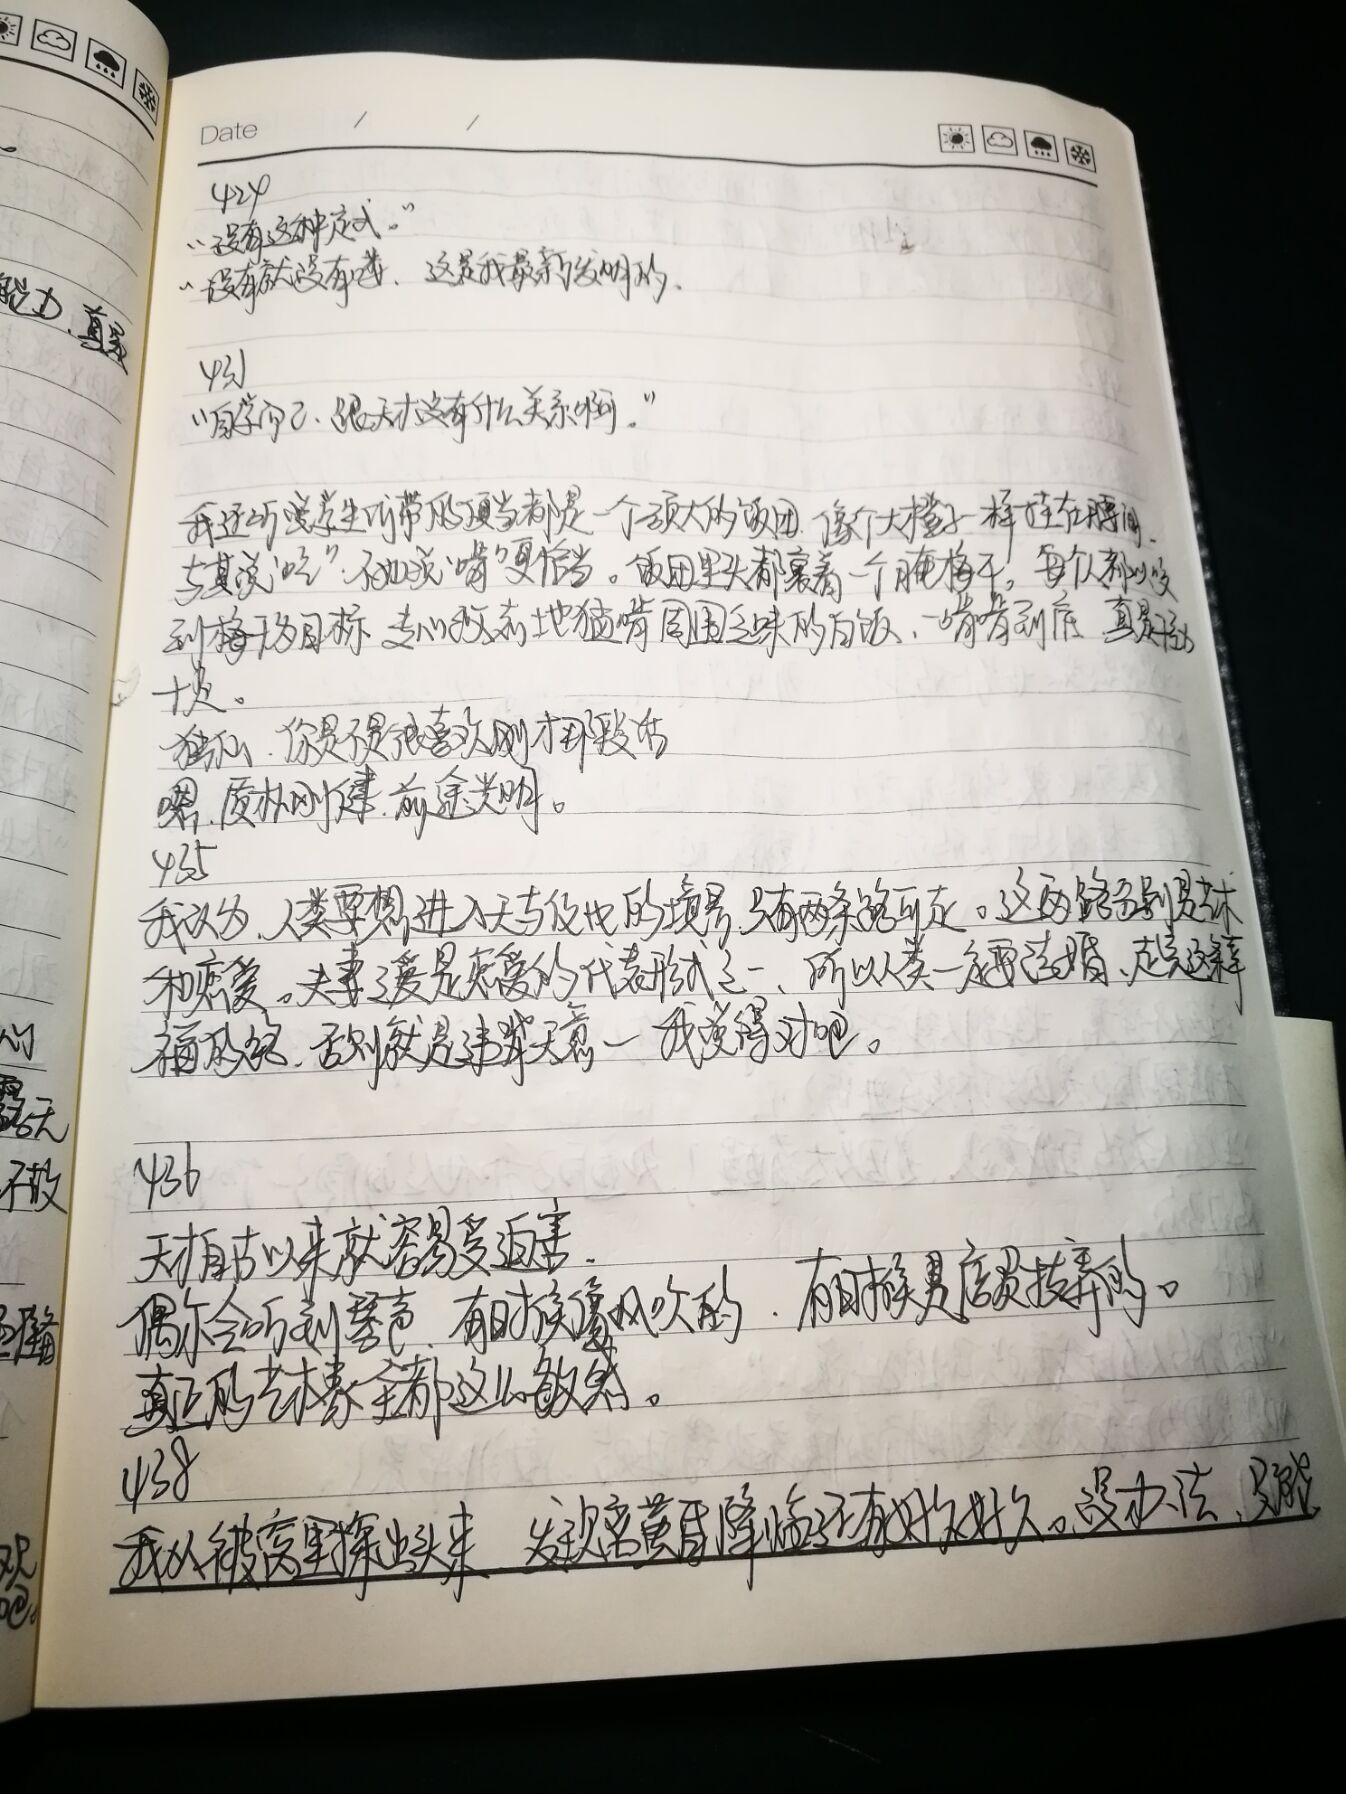 Date / /
424
“没有这种定式。”
“没有就没有喽、这是我最新发明的、
431
“自学而已、跟天才没有什么关系啊。”
我还听说学生所带的便当都是一个硕大的饭团、像个大橙子一样挂在腰间、
与其说“吃”、不如说“啃”更恰当。饭团里头都裹着一个腌梅干。每个人都以吃
到梅干为目标 专心致志地猛啃周围乏味的白饭、一啃啃到底 真是干劲
十足。
独仙、你是不是很喜欢刚才那段话
嗯、质朴刚健、前途光明。
435
我认为、人类要想进入天与彼此的境界、只有两条路可走。这两路分别是艺术
和恋爱。夫妻之爱是恋爱的代表形式之一、所以人类一定要结婚、走完这幸
福历程、否则就是违背天意—我说得对吧。
436
天才自古以来就容易受迫害、
偶尔会听到琴声、有时候像风吹的、有时候是店员拨弄的。
真正的艺术家全都这么敏感。
438
我从被窝里探出头来 发现离黄昏降临还有好久好久。没办法、只能
能力、真是
们
露天
不敢
吧。